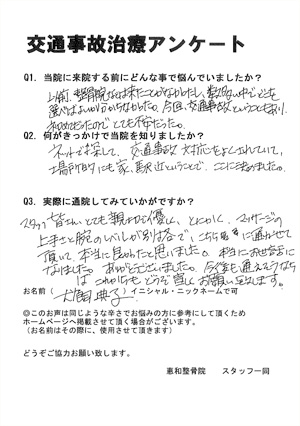 交通事故治療アンケート
Q1. 当院に来院する前にどんな事で悩んでいましたか?
以前、整骨院などは来たことがなかったし、数ある中でどこを
選べばよいか分からなかった。今回、交通事故ということもあり
初めだったのでとても不安だった。
Q2. 何がきっかけで当院を知りましたか?
ネットで探して、交通事故対応をよくされていて、
場所的にも家、駅近ということで、ここに決めました。
Q3. 実際に通院してみていかがですか?
スタッフ皆さん、とても親切で優しく、とにかく、マッサージの
上手さと腕のレベルが別格で、こちらに通わせて
頂いて、本当に良かったと思いました。本当にお世話に
なりました。ありがとうございました。今後も通えそうなら
これからもどうぞ宜しくお願い致します。
お名前( )イニシャル・ニックネームで可
◎このお声は同じような辛さでお悩みの方に参考にして頂くため
ホームページへ掲載させて頂く場合がございます。
(お名前はその際に、使用させて頂きます)
どうぞご協力お願い致します。
恵和整骨院 スタッフ一同